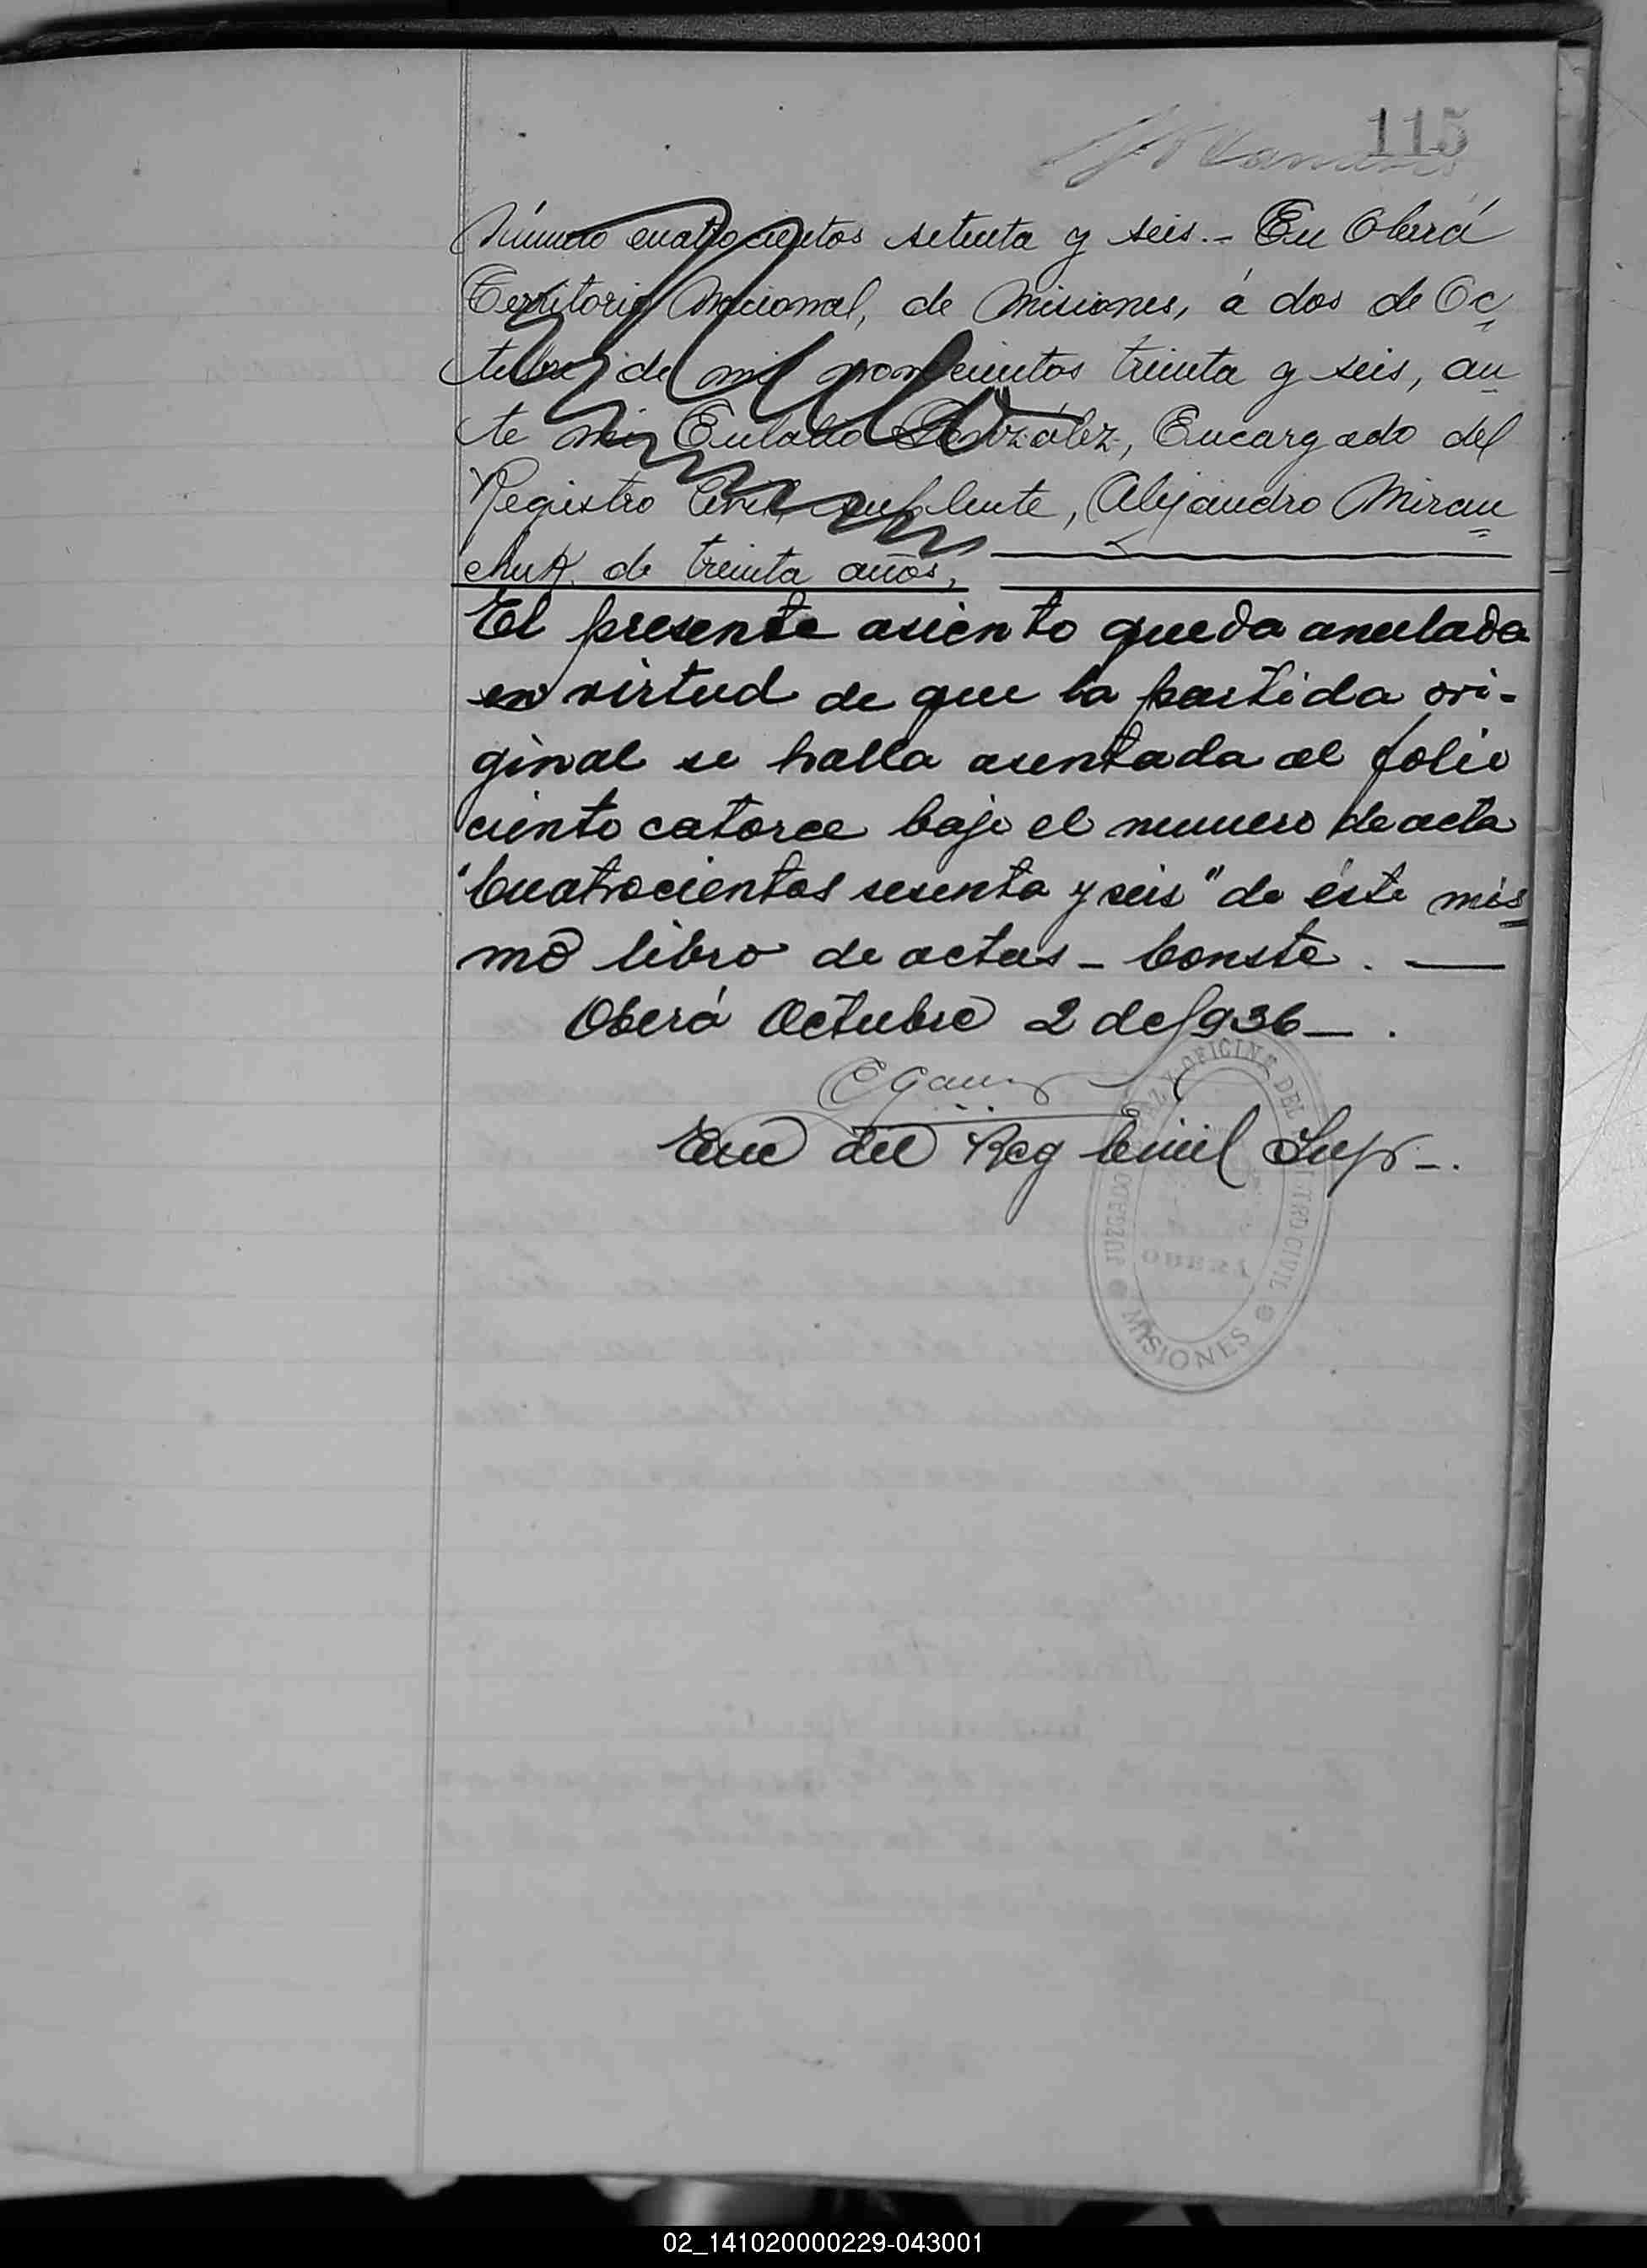 115
Número cuatrocientos setenta y seis.- En Oberá
Territorio Nacional, de Misiones, á dos de Oc
tubre de mil novecientos treinta y seis, an
te mi, Eulalio González, Encargado del
Registro Civil suplente, Alejandro Miran
chuk, de treinta años,
El presente asiento queda anulada
en virtud de que la partida ori-
ginal se halla asentada al folio
ciento catorce bajo el numero de acta
"Cuatrocientos sesenta y seis" de éste mis
mo libro de actas - Conste. —
Oberá Octubre 2 de 1936 — .
Enc del Reg Civil Sup -.
JUZGADO DE PAZ Y OFICINA DEL REGISTRO CIVIL
OBERA
MISIONES
02_141020000229-043001